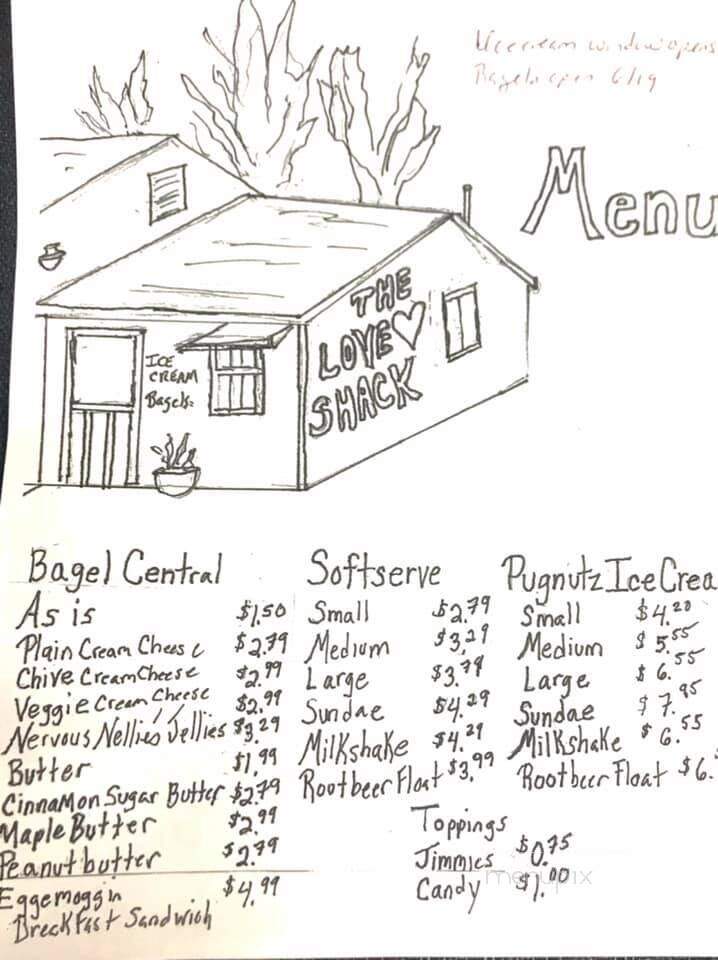 Icecream window opens
Bagels open 6/19
Menu
THE
LOVE
SHACK
ICE
CREAM
Bagels
Bagel Central
As is $1.50
Plain Cream Cheese $2.79
Chive Cream Cheese $2.99
Veggie Cream Cheese $2.99
Nervous Nellies Jellies $3.29
Butter $1.99
Cinnamon Sugar Butter $2.79
Maple Butter $2.99
Peanut butter $2.79
Eggemoggin $4.99
Breckfast Sandwich
Softserve
Small $2.79
Medium $3.29
Large $3.79
Sundae $4.29
Milkshake $4.29
Rootbeer Float $3.99
Pugnutz Ice Crea
Small $4.20
Medium $5.55
Large $6.55
Sundae $7.95
Milkshake $6.55
Rootbeer Float $6.
Toppings
Jimmies $0.75
Candy $1.00
menupix